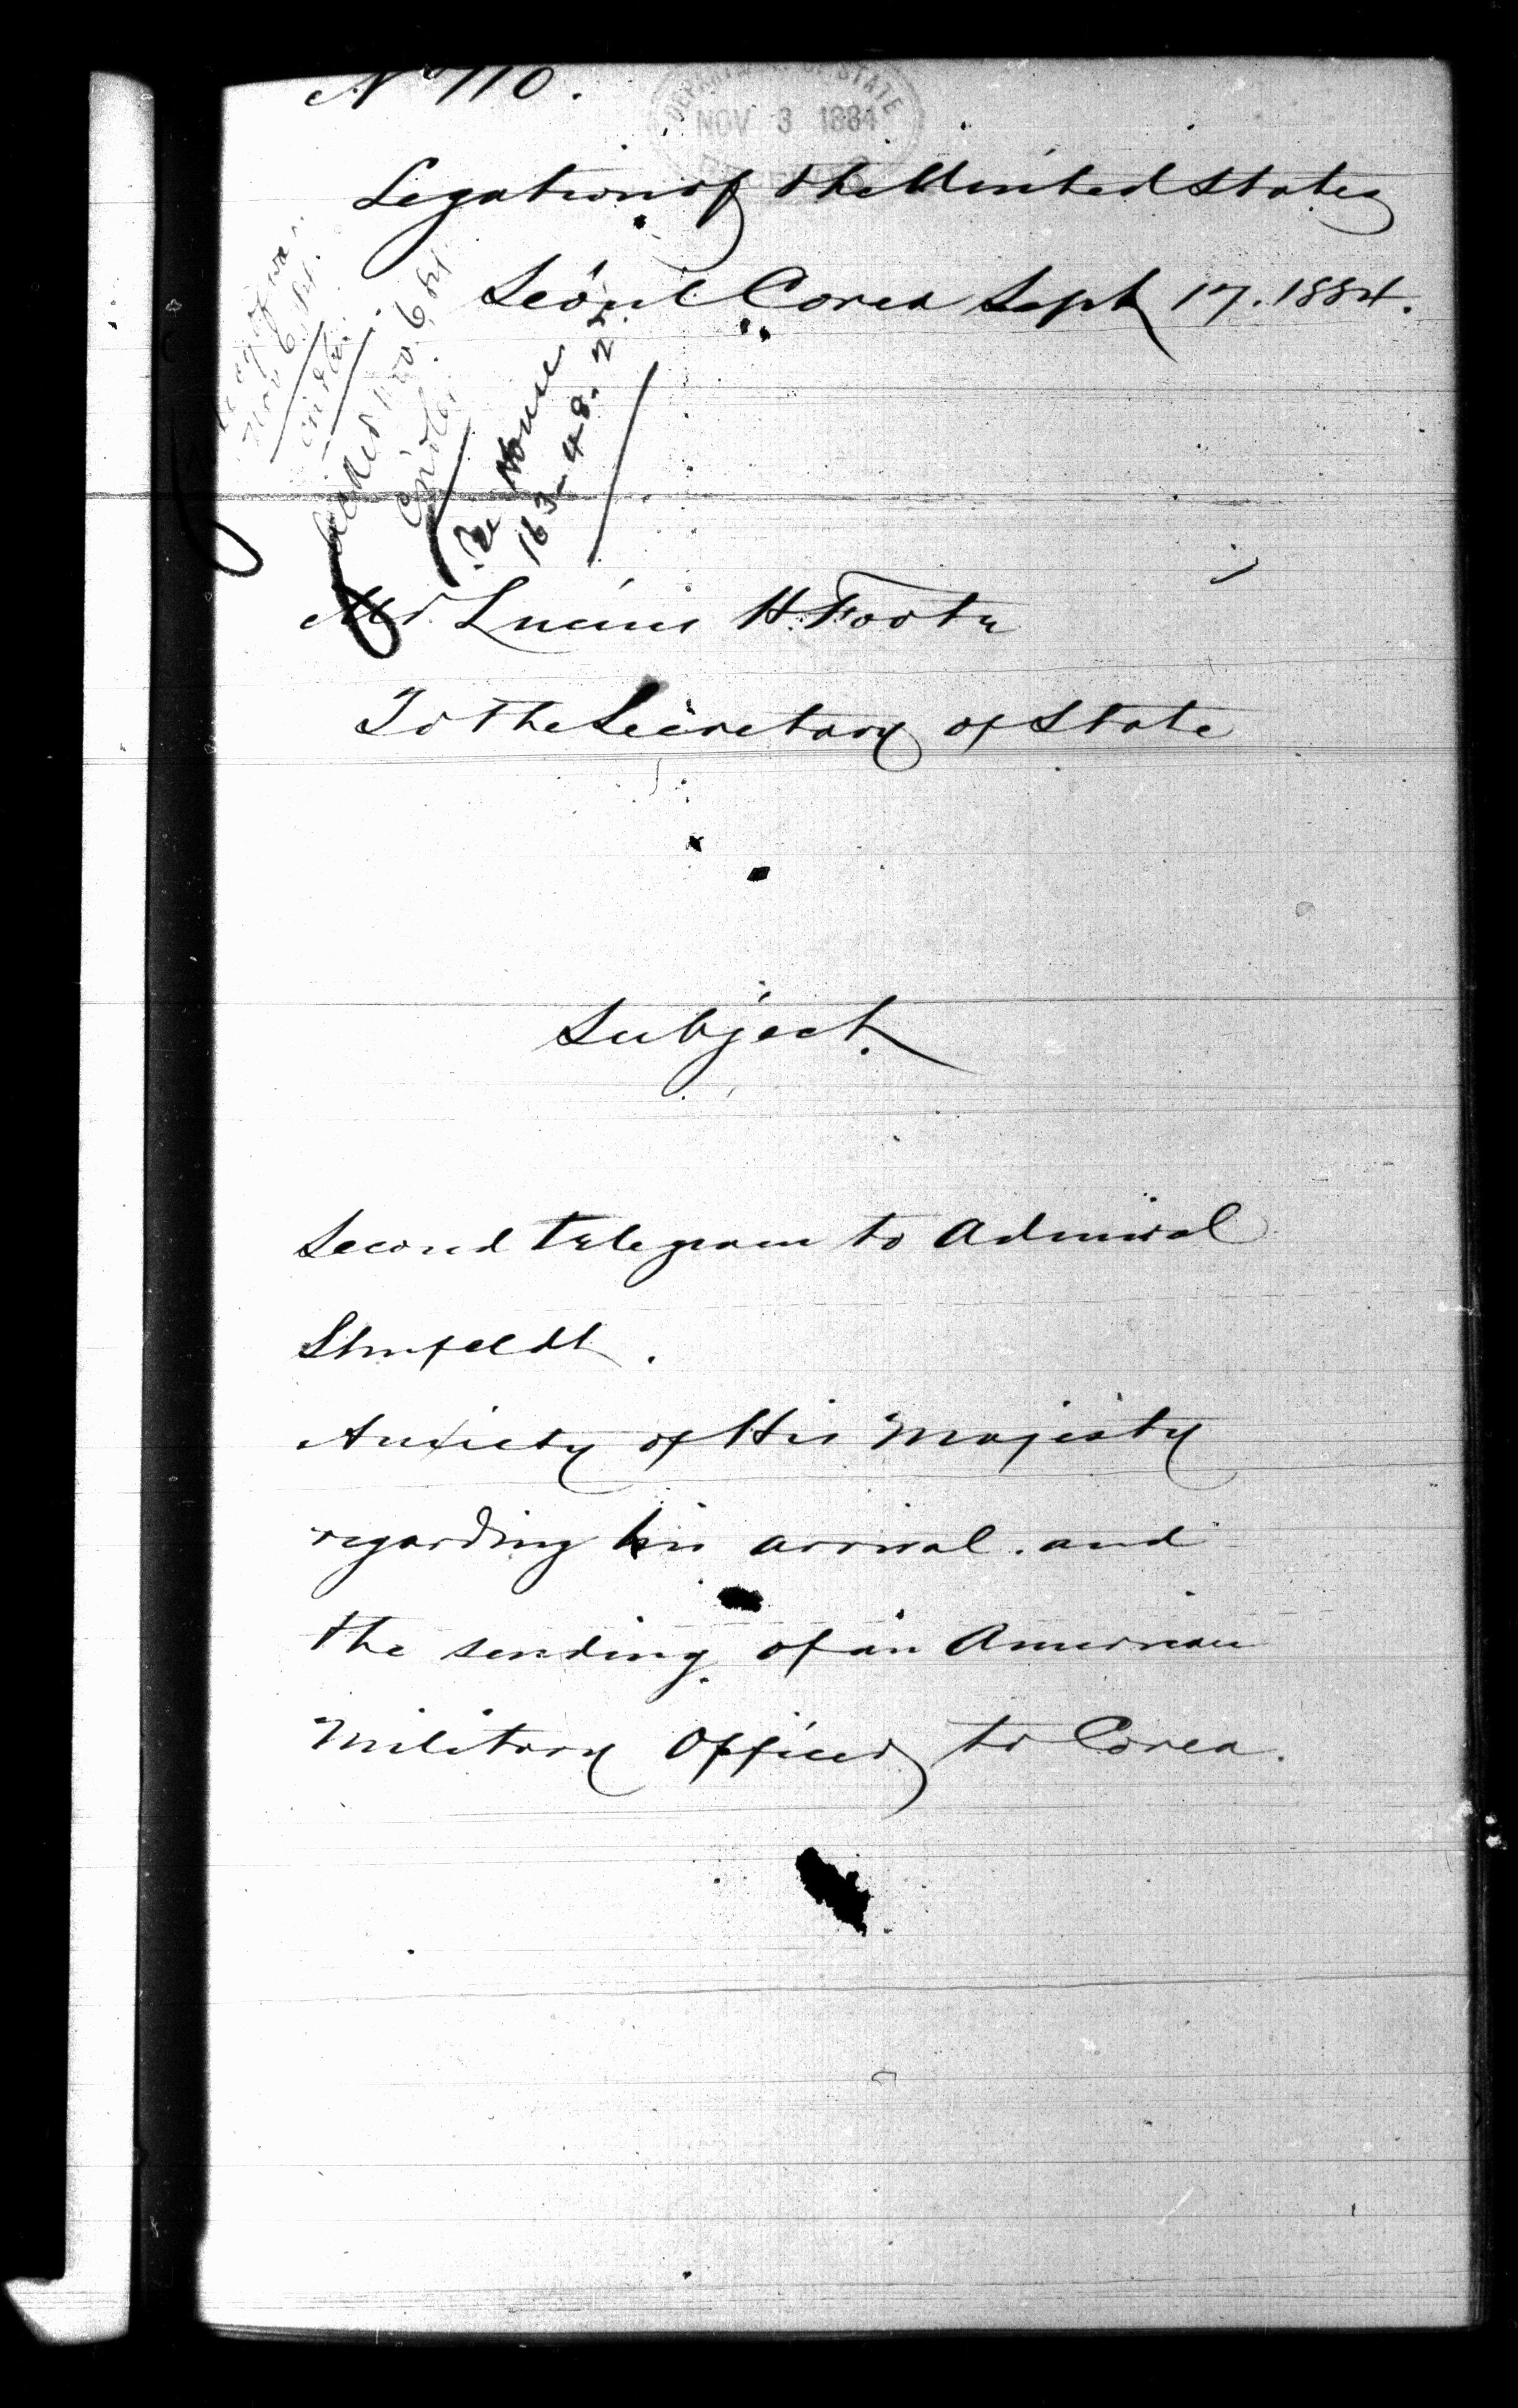 No 110.
DEPARTMENT OF STATE
NOV 3 1884
Legation of the United States
Seoul Corea Sept 17. 1884.
Nov 6. 84.
Nov. 6 84
To House
163-48.2
Mr. Lucius H. Foote
To the Secretary of State
Subject.
Second telegram to Admiral
Shufeldt.
Anxiety of His Majesty
regarding his arrival. and
the sending of an American
Military Officer to Corea.